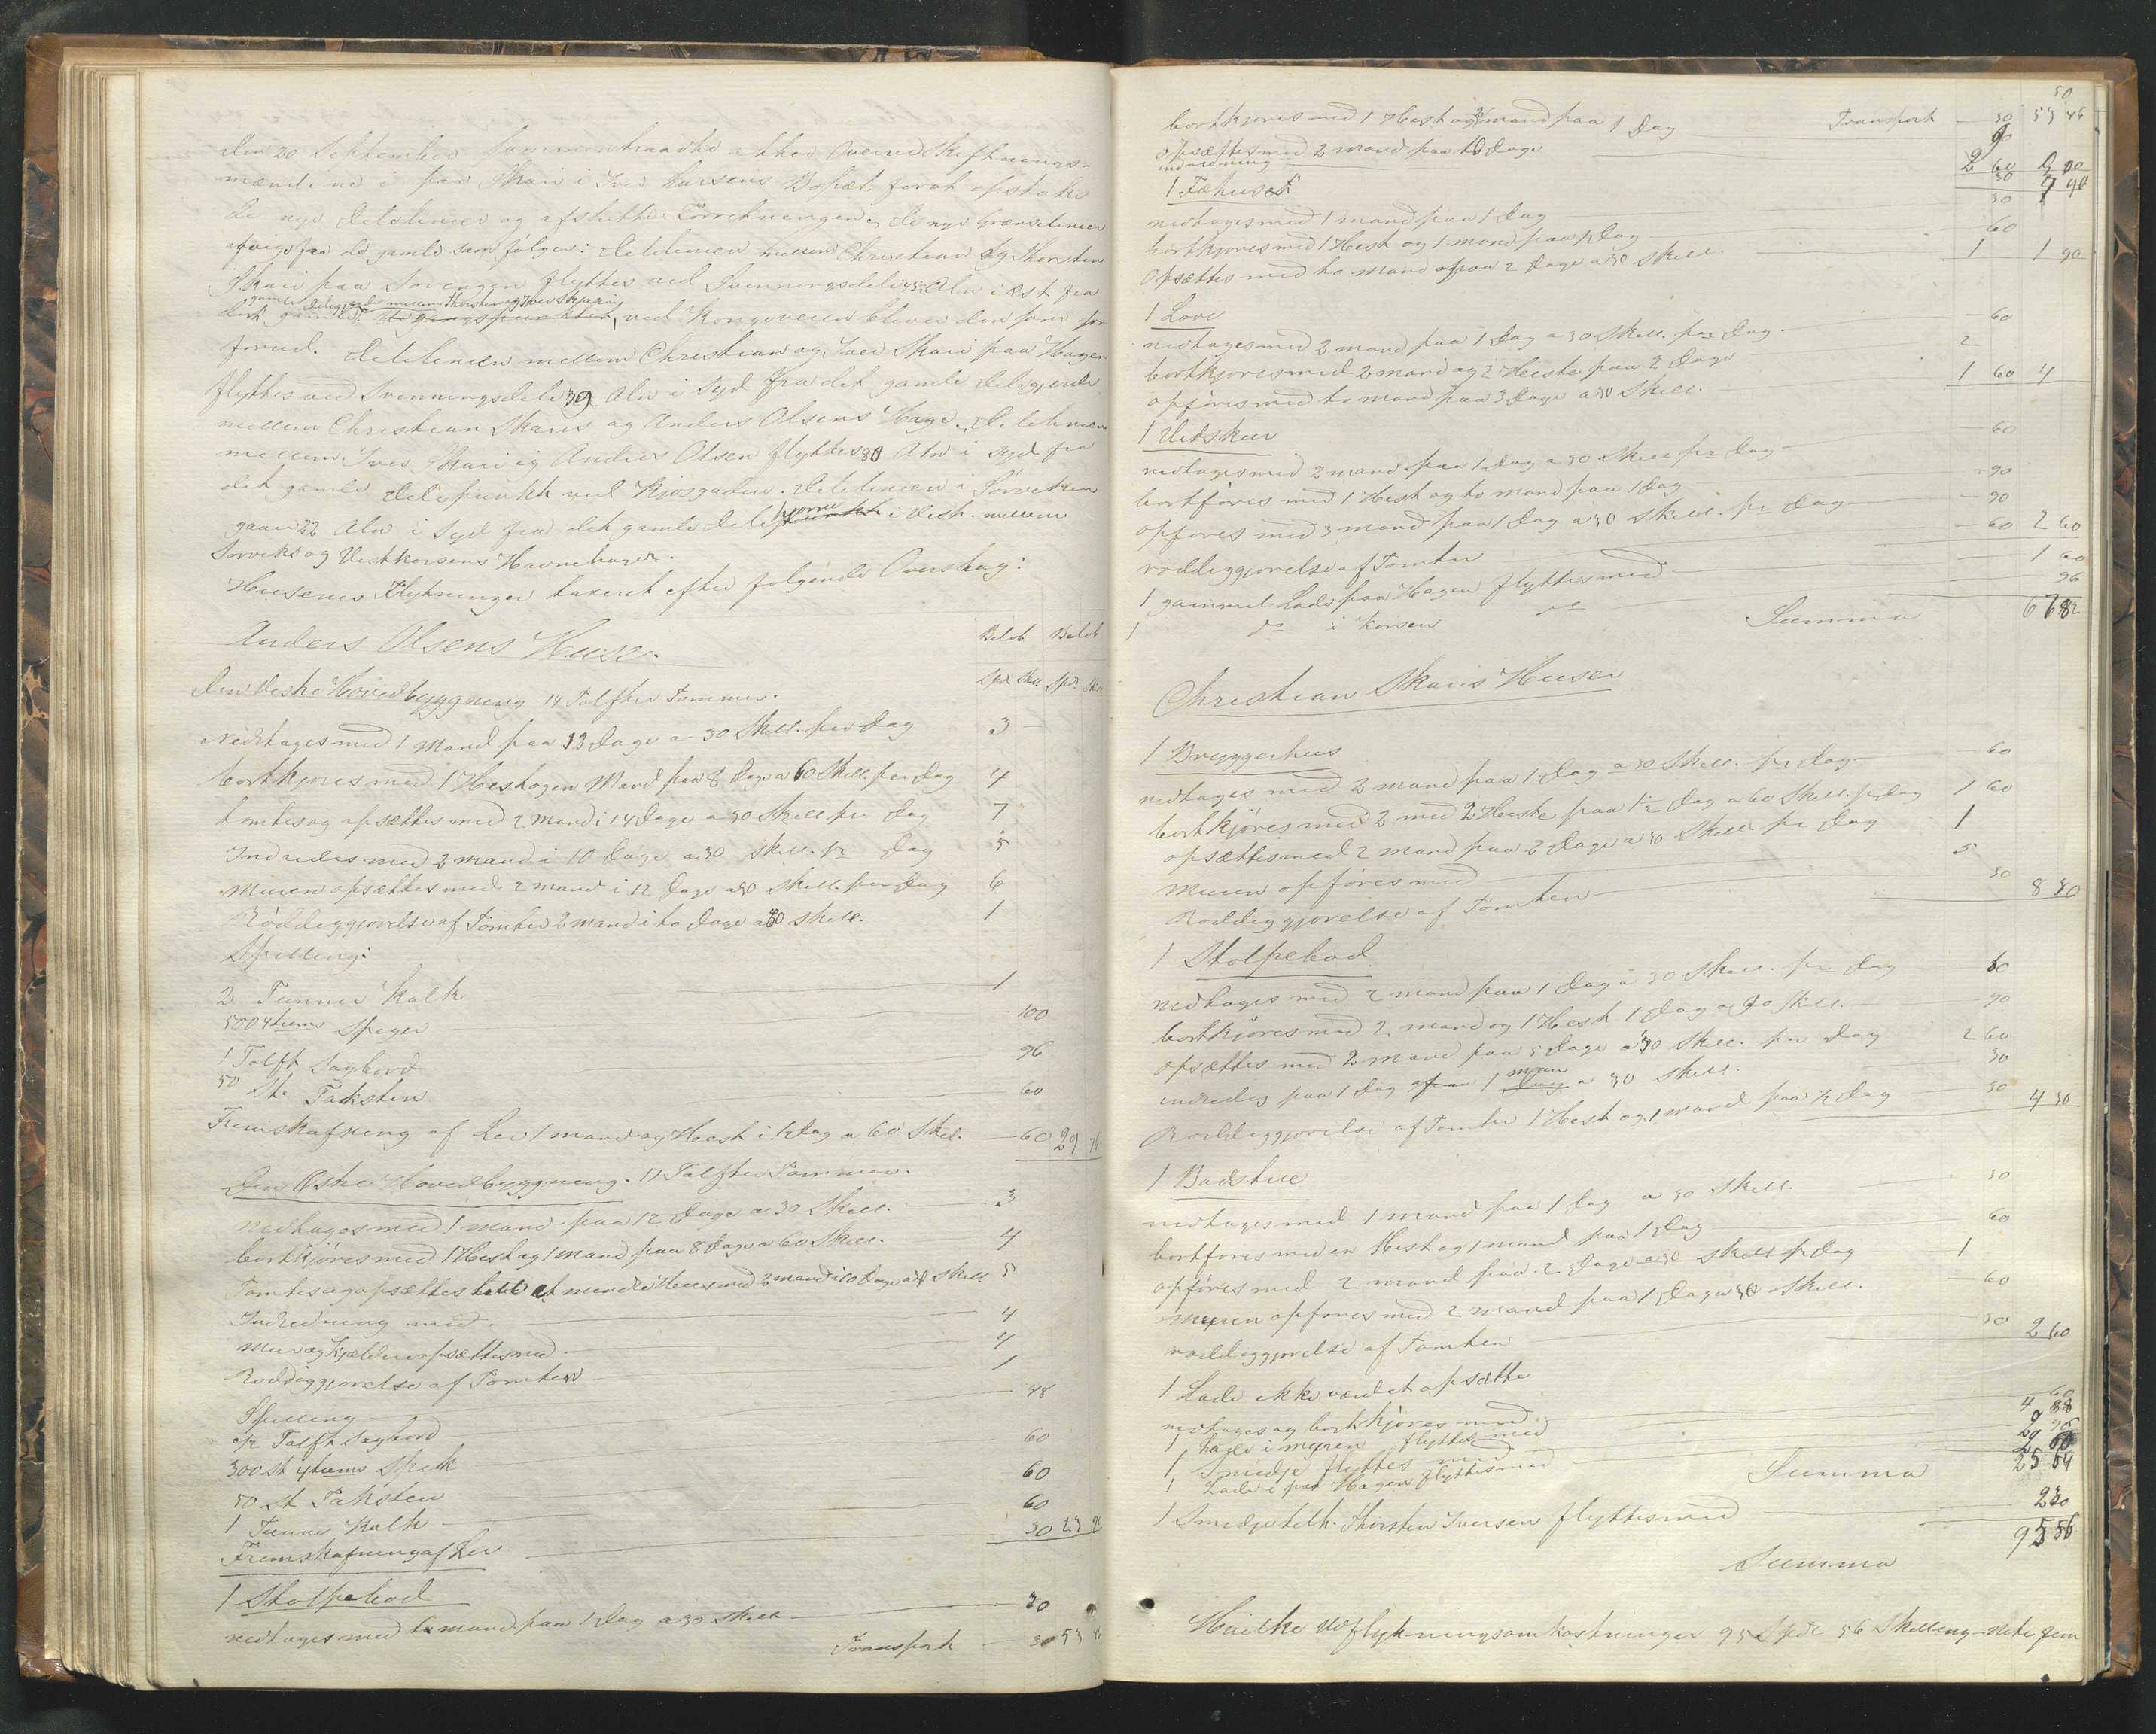 Den 20 September sammentraadte atter Overudskiftnings-
mændene i paa Skari i Iver Larsens Bopæl forat opstake
de nye Delelinier og afslutte Forretningen, de nye Grændselinier
afviger fra de gamle som følger: Delelinien mellem Christian og Thorsten
Skari paa Sørengen flyttes ved Svenningsdele 45 Aln i øst fra
gamle delegjerde mellem Thorsten og Iver Skari
det gamle, ved Kongeveien bliver den som før
forud. Delelinien mellem Christian og Iver Skari paa Hagen
flyttes ved Svenningsdele 39 Aln i Syd fra det gamle Delegjerde
mellem Christian Skaris og Anders Olsens Hage. Delelinien
mellem Iver Skari og Anders Olsen flyttes 80 Aln i Syd fra
det gamle Delepunkt ved Kjosgaden. Delelinien i Sørveken
gaar 22 Aln i Syd fra det gamle Dele hjørne i Vest. mellem
Sørveks og Vestkorsens Havnehager.
Husenes Flytninger taxeret efter følgende Overslag:
Anders Olsens Huse.
Beløb Beløb
Spd. Skill Spd. Skill
Den Vestre Hovedbyggning 14 Tolfter Tømmer.
Nedtages med 1 Mand paa 12 Dage a 30 Skill. per Dag 3
bortkjøres med 1 Hest og en Mand paa 8 Dage a 60 Skill. per Dag 4
tomtes og opsættes med 2 Mand i 14 Dage a 30 Skill pr Dag 7
Indredes med 2 Mand i 10 Dage a 30 Skill. pr Dag 5
Muren opsættes med 2 Mand i 12 Dage a 30 Skill. per Dag 6
Røddiggjørelse af Tomten 2 Mand i to Dage a 30 Skill. 1
Spilling:
2 Tønner Kalk 1
500 4 tums Spiger 100
1 Tolft Sagbord 96
50 St. Taksten 60
Fremskafning af Ler 1 mand og Hest i 1 Dag a 60 Skil. 60 29 76
Den Østre Hovedbyggning. 11 Tolfter Tømmer.
Nedtages med 1 mand paa 12 Dage a 30 Skill. 3
bortkjøres med 1 Hest og 1 mand paa 8 Dage a 60 Skill. 4
Tomtes og opsættes til et mindre Huus med 2 mand i 10 Dage a 30 Skill 5
Indredning med 4
Mur og Kjelder opsættes med 4
Røddiggjørelse af Tomten 1
Spilling
1/2 Tolft Sagbord 48
300 St 4 tums Spik 60
50 St Taksten 60
1 Tønne Kalk 60
Fremskafning af Ler 30 23
1 Stolpebod
nedtages med to mand paa 1 Dag a 30 Skill 30
Transport 30 53 46
50
bortkjøres med 1 Hest og mand paa 1 Dag Transport 30 53 46
opsættes med 2 mand paa Dage 90
indredning 2 60
1 Fæhuset
nedtages med 1 mand paa 1 Dag 30
bortkjøres med 1 Hest og 1 mand paa 1 Dag 60
opsættes med to mand paa 2 Dage a 30 Skill. 1 1 90
1 Løve
nedtages med 2 mand paa 1 Dag a 30 Skill. per Dag 60
bortkjøres med 2 mand og 2 Heste paa 2 Dage 2
opføres med to mand paa 3 Dage a 30 Skill. 1 60 4
1 Vedskur
nedtages med 2 mand paa 1 Dag a 30 Skill pr Dag 60
bortføres med 1 Hest og to mand paa 1 Dag 90
opføres med 3 mand paa 1 Dag a 30 Skill. pr Dag 90
røddiggjørelse af Tomten 60 2 60
1 gammel Lade paa Hagen flyttes med 1 60
1 do i Korsen do 96
Summa 67 82
Christian Skaris Huser
1 Bryggerhus
nedtages med 2 mand paa 1 Dag a 30 Skill. pr Dag 60
bortkjøres med 2 med 2 Heste paa 1 Dag a 60 Skill. pr Dag 1 60
opsættes med 2 mand paa 2 Dage a 30 Skill. pr Dag 1
Muren opføres med 5
Røddiggjørelse af Tomten 30 8 30
1 Stolpebod
nedtages med 2 mand paa 1 Dag a 30 Skill. pr Dag 60
bortkjøres med 2 mand og 1 Hest 1 Dag a 90 Skill. 90
opsættes med 2 mand paa 5 Dage a 30 Skill. per Dag 2 60
indredes paa 1 Dag af 1 man a 30 Skill. 30
Røddiggjørelse af Tomten 1 Hest og 1 mand paa 1/2 Dag 30 4 30
1 Badstue
nedtages med 1 mand paa 1 Dag a 30 Skill. 30
bortføres med en Hest og 1 mand paa 1 Dag 60
opføres med 2 mand paa 2 Dage a 30 Skill pr Dag 1
muren opføres med 2 mand paa 1 Dag a 30 Skill. 60
røddiggjørelse af Tomten 30 2 60
1 Lade ikke værd at opsætte
nedtages og bortkjøres med 60
1 Lade i myren flyttes med 4 88
1 Smedje flyttes med
1 Lade i paa Hagen flyttes med
Summa 25 54
1 Smedje tilh. Thorsten Iversen flyttes med 2 30
Summa 95 56
Hvilke Udflytningsomkostninger 95 Spd 56 Skilling – Niti fem